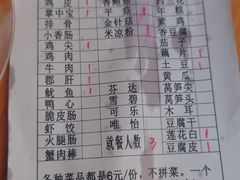 鸡皮 1
掌中宝 1 平菇
排骨 金针菇
小香肠 米凉粉 1
鸡尖 1
鸡肉 藕
牛肉 1 土豆 1
郡肝 1 黄瓜
鱿鱼 1 芬达 莴笋 1
鸭心 雪碧 莴笋头
脆皮肠 可乐 木耳
虾饺 唯怡 豆腐干
火腿肠 就餐人数 3 莲花白 1
蟹肉棒 豆腐皮 1
各种菜品都是6元/份，不拼菜。一个